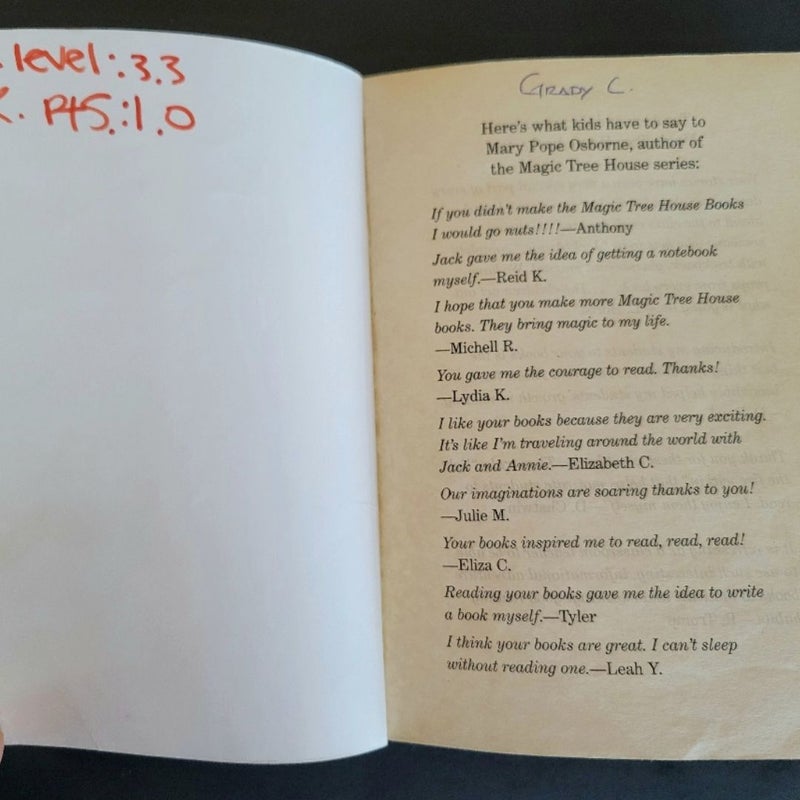 level: 3.3
. Pts.: 1.0
Grady C.
Here's what kids have to say to
Mary Pope Osborne, author of
the Magic Tree House series:
If you didn't make the Magic Tree House Books
I would go nuts!!!!—Anthony
Jack gave me the idea of getting a notebook
myself.—Reid K.
I hope that you make more Magic Tree House
books. They bring magic to my life.
—Michell R.
You gave me the courage to read. Thanks!
—Lydia K.
I like your books because they are very exciting.
It's like I'm traveling around the world with
Jack and Annie.—Elizabeth C.
Our imaginations are soaring thanks to you!
—Julie M.
Your books inspired me to read, read, read!
—Eliza C.
Reading your books gave me the idea to write
a book myself.—Tyler
I think your books are great. I can't sleep
without reading one.—Leah Y.